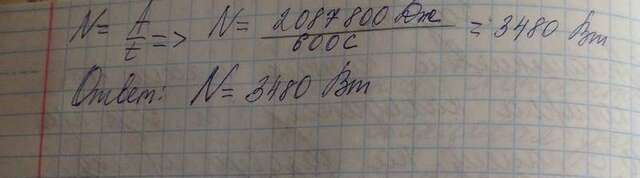 N = A/t => N = 2087800 Дж/600с = 3480 Вт
Ответ: N = 3480 Вт